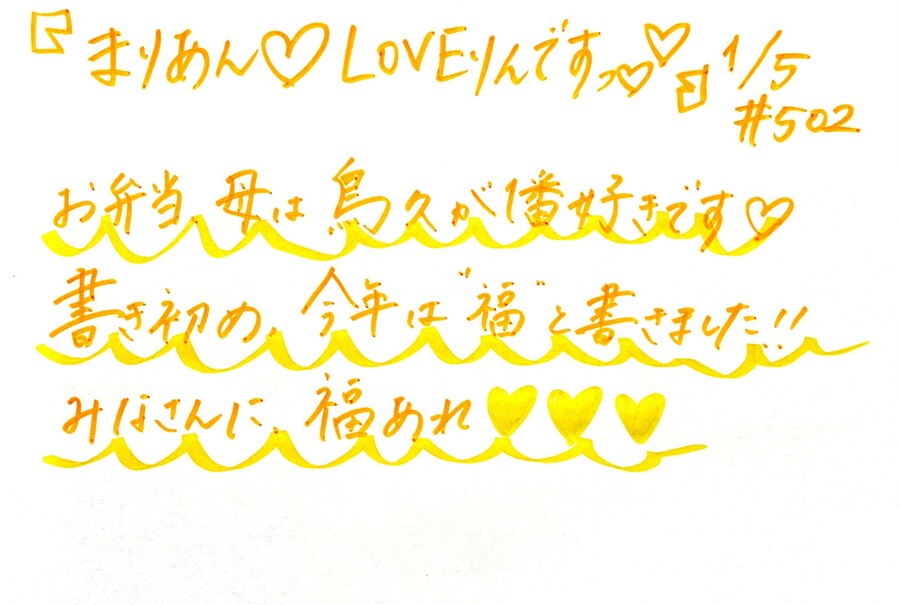 『まりあん♡LOVEりんですっ♡♡』1/5
#502
お弁当、母は鳥久が1番好きです♡
書き初め、今年は"福"と書きました!!
みなさんに、福あれ♥♥♥